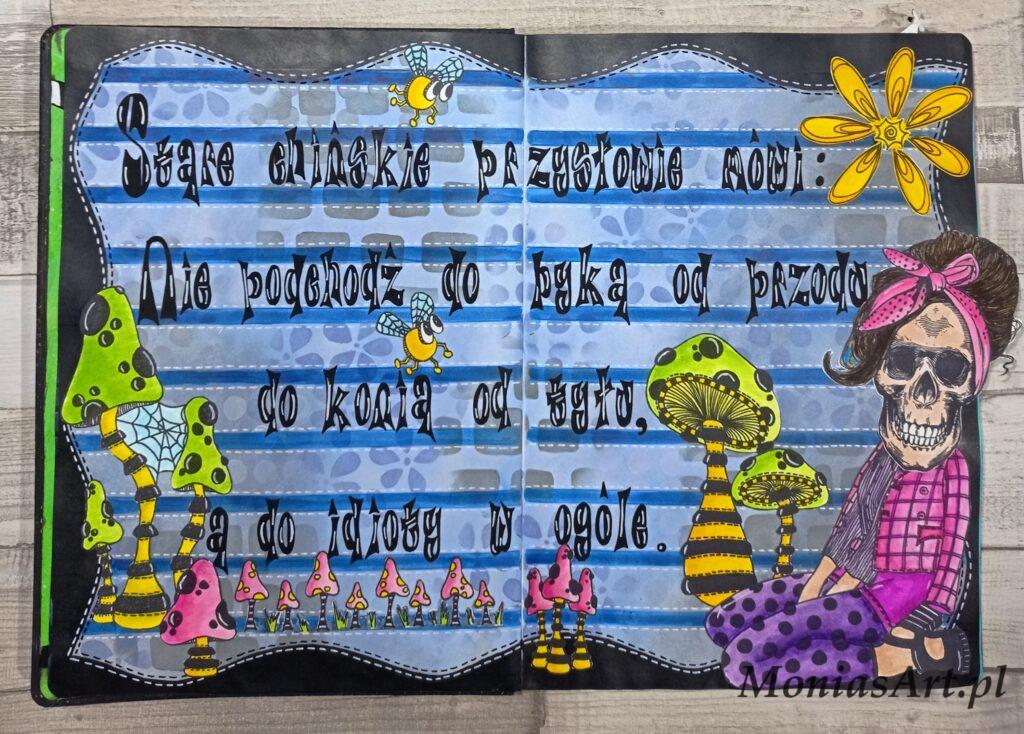 Stare chińskie przysłowie mówi:
Nie podchodź do byka od przodu
do konia od tyłu,
a do idioty w ogóle.
MoniasArt.pl